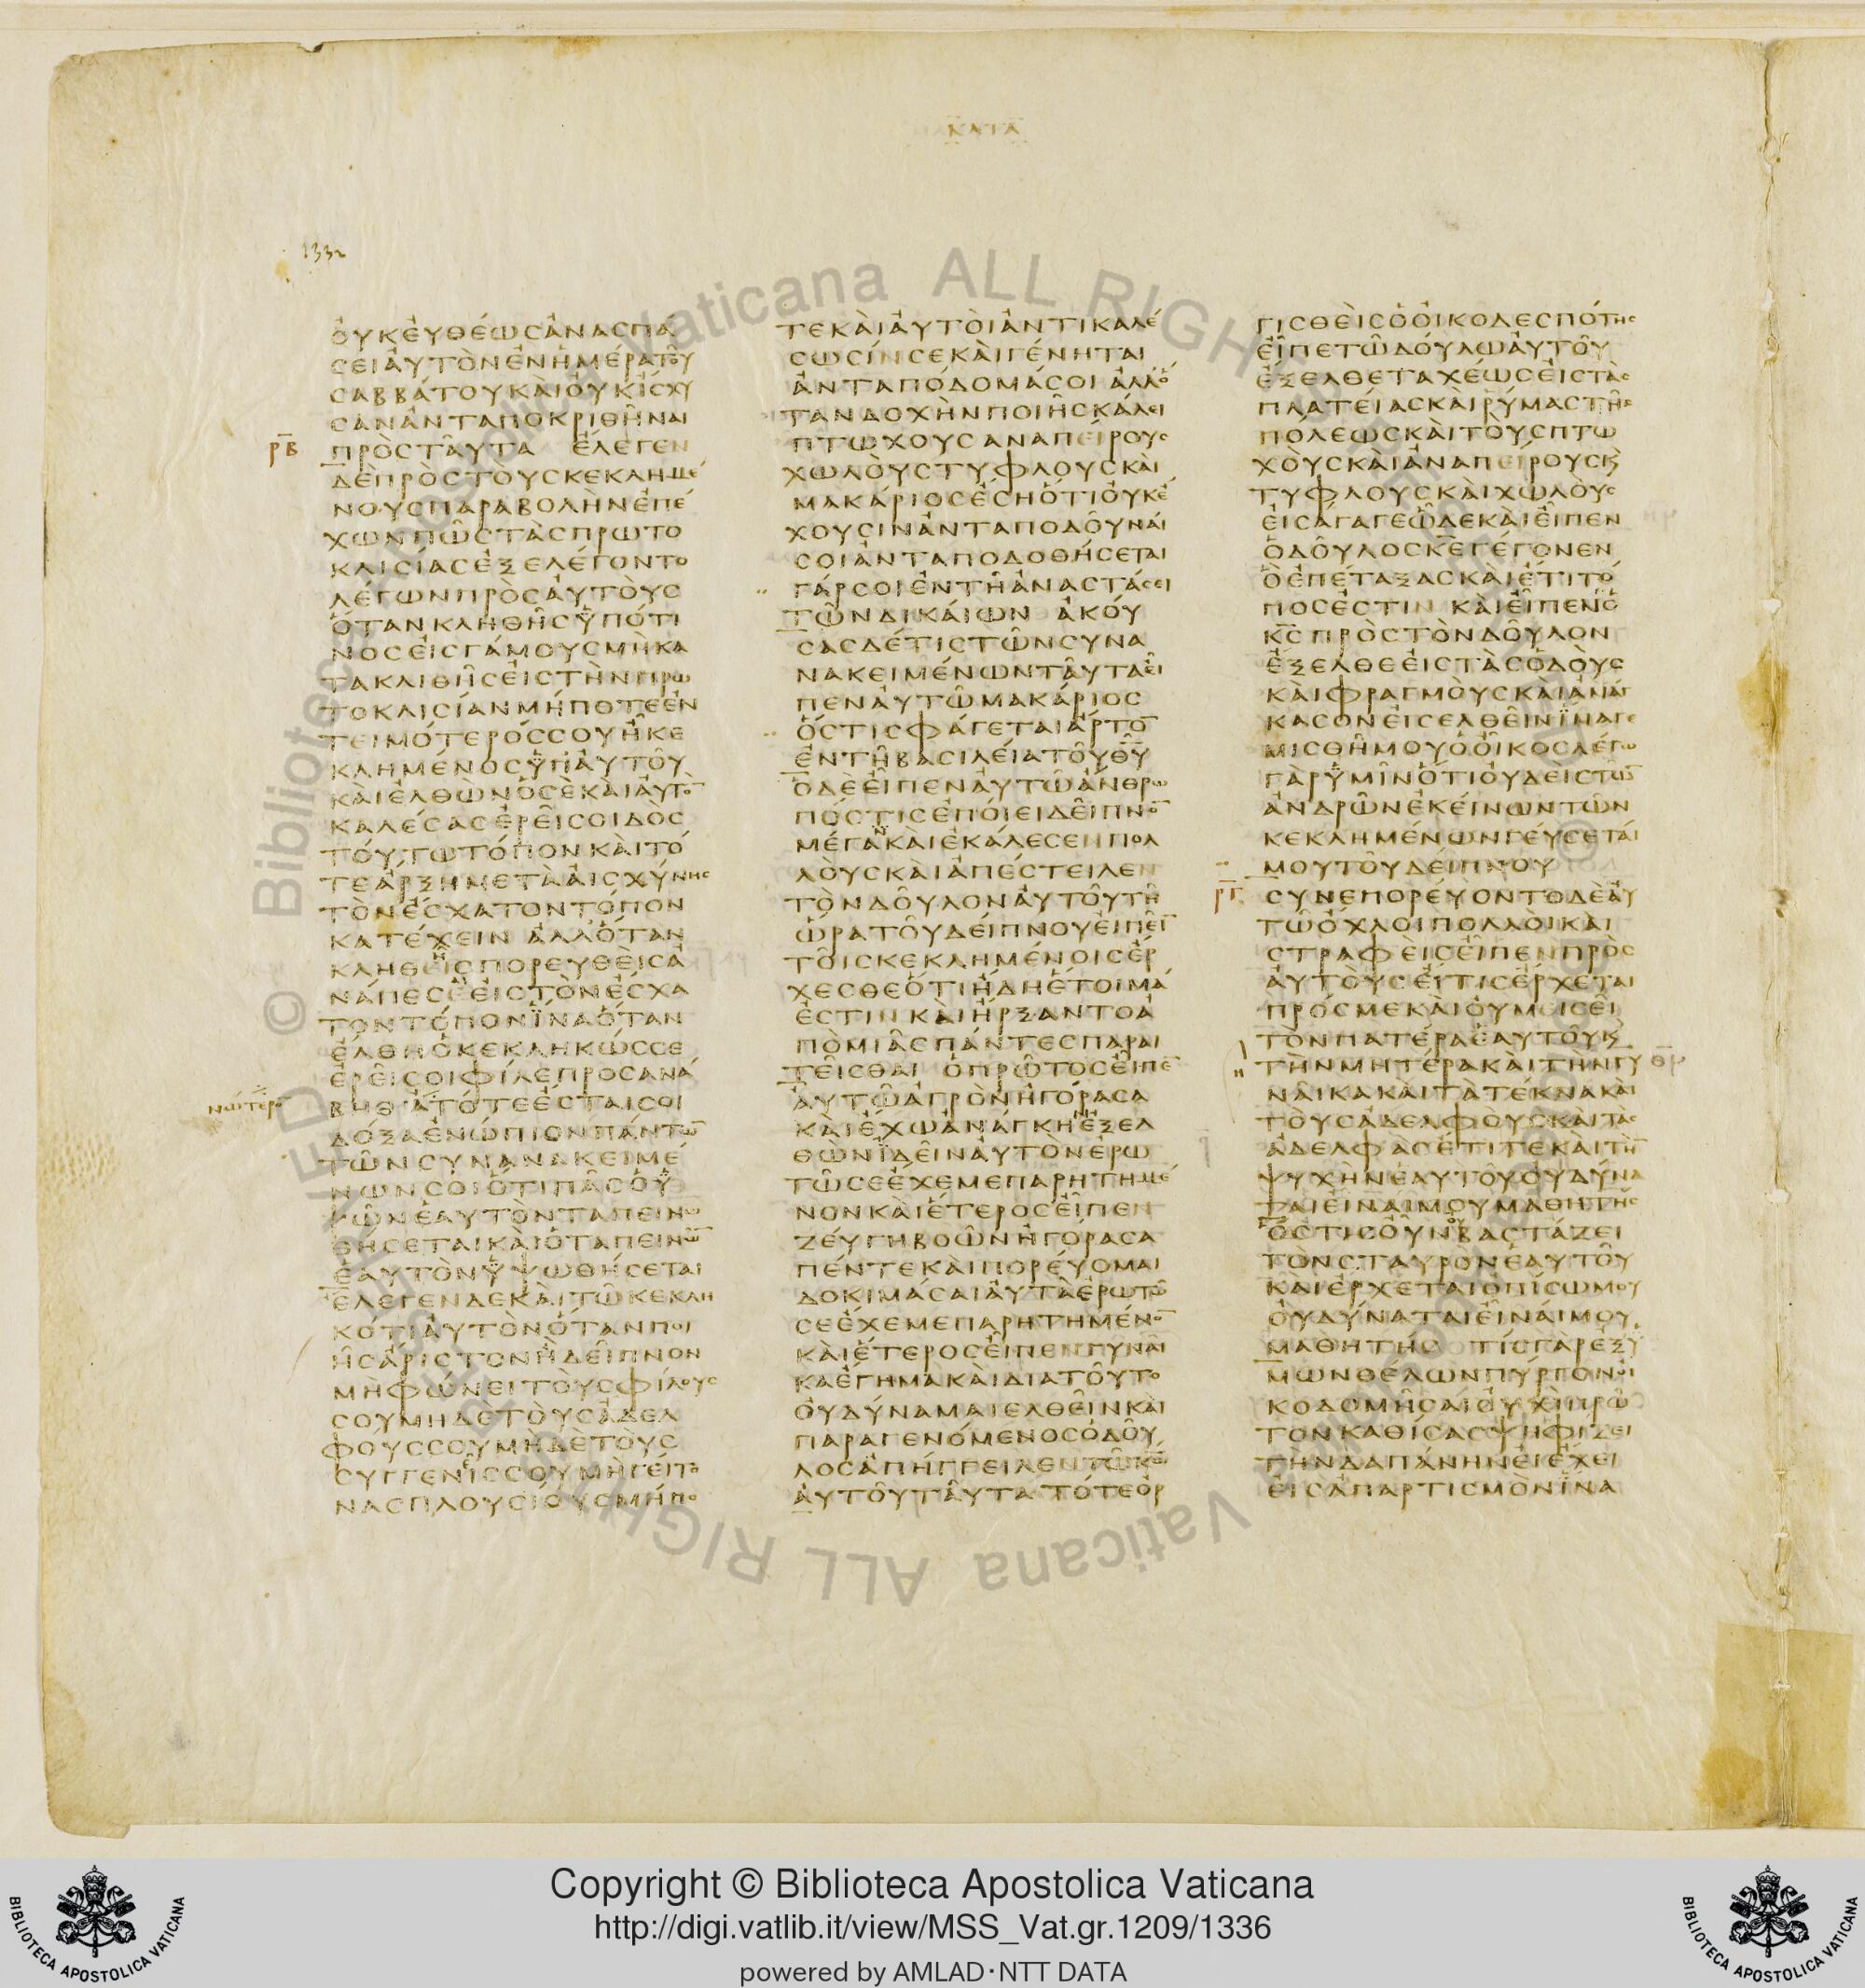 ΚΑΤΑ
1332
ΟΥΚΕΥΘΕΩϹΑΝΑϹΠΑ
ϹΕΙΑΥΤΟΝΕΝΗΜΕΡΑΤΟΥ
ϹΑΒΒΑΤΟΥΚΑΙΟΥΚΙϹΧΥ
ϹΑΝΑΝΤΑΠΟΚΡΙΘΗΝΑΙ
ΠΡΟϹΤΑΥΤΑ ΕΛΕΓΕΝ
ΔΕΠΡΟϹΤΟΥϹΚΕΚΛΗΜΕ
ΝΟΥϹΠΑΡΑΒΟΛΗΝΕΠΕ
ΧΩΝΠΩϹΤΑϹΠΡΩΤΟ
ΚΛΙϹΙΑϹΕΞΕΛΕΓΟΝΤΟ
ΛΕΓΩΝΠΡΟϹΑΥΤΟΥϹ
ΟΤΑΝΚΛΗΘΗϹΥΠΟΤΙ
ΝΟϹΕΙϹΓΑΜΟΥϹΜΗΚΑ
ΤΑΚΛΙΘΗϹΕΙϹΤΗΝΠΡΩ
ΤΟΚΛΙϹΙΑΝΜΗΠΟΤΕΕΝ
ΤΕΙΜΟΤΕΡΟϹϹΟΥΗΚΕ
ΚΛΗΜΕΝΟϹΥΠΑΥΤΟΥ
ΚΑΙΕΛΘΩΝΟϹΕΚΑΙΑΥΤΟ̅
ΚΑΛΕϹΑϹΕΡΕΙϹΟΙΔΟϹ
ΤΟΥΤΩΤΟΠΟΝΚΑΙΤΟ
ΤΕΑΡΞΗΜΕΤΑΑΙϹΧΥΝΗϹ
ΤΟΝΕϹΧΑΤΟΝΤΟΠΟΝ
ΚΑΤΕΧΕΙΝ ΑΛΛΟΤΑΝ
ΚΛΗΘΕΙϹΠΟΡΕΥΘΕΙϹΑ
ΝΑΠΕϹΕΕΙϹΤΟΝΕϹΧΑ
ΤΟΝΤΟΠΟΝΪΝΑΟΤΑΝ
ΕΛΘΗΟΚΕΚΛΗΚΩϹϹΕ
ΕΡΕΙϹΟΙΦΙΛΕΠΡΟϹΑΝΑ
ΒΗΘΑΤΟΤΕΕϹΤΑΙϹΟΙ
ΔΟΞΑΕΝΩΠΙΟΝΠΑΝΤΩ̅
ΤΩΝϹΥΝΑΝΑΚΕΙΜΕ
ΝΩΝϹΟΙΟΤΙΠΑϹΟΥ
ΨΩΝΕΑΥΤΟΝΤΑΠΕΙΝΩ
ΘΗϹΕΤΑΙΚΑΙΟΤΑΠΕΙΝΩ̅
ΕΑΥΤΟΝΥΨΩΘΗϹΕΤΑΙ
ΕΛΕΓΕΝΔΕΚΑΙΤΩΚΕΚΛΗ
ΚΟΤΙΑΥΤΟΝΟΤΑΝΠΟΙ
ΗϹΑΡΙϹΤΟΝΗΔΕΙΠΝΟΝ
ΜΗΦΩΝΕΙΤΟΥϹΦΙΛΟΥϹ
ϹΟΥΜΗΔΕΤΟΥϹΑΔΕΛ
ΦΟΥϹϹΟΥΜΗΔΕΤΟΥϹ
ϹΥΓΓΕΝΙϹϹΟΥΜΗΓΕΙΤΟ
ΝΑϹΠΛΟΥϹΙΟΥϹΜΗΠΟ
ΤΕΚΑΙΑΥΤΟΙΑΝΤΙΚΑΛΕ
ϹΩϹΙΝϹΕΚΑΙΓΕΝΗΤΑΙ
ΑΝΤΑΠΟΔΟΜΑϹΟΙ ΑΛΛΟ
ΤΑΝΔΟΧΗΝΠΟΙΗϹΚΑΛΕΙ
ΠΤΩΧΟΥϹΑΝΑΠΕΙΡΟΥϹ
ΧΩΛΟΥϹΤΥΦΛΟΥϹΚΑΙ
ΜΑΚΑΡΙΟϹΕϹΗΟΤΙΟΥΚΕ
ΧΟΥϹΙΝΑΝΤΑΠΟΔΟΥΝΑΙ
ϹΟΙΑΝΤΑΠΟΔΟΘΗϹΕΤΑΙ
ΓΑΡϹΟΙΕΝΤΗΑΝΑϹΤΑϹΕΙ
ΤΩΝΔΙΚΑΙΩΝ ΑΚΟΥ
ϹΑϹΔΕΤΙϹΤΩΝϹΥΝΑ
ΝΑΚΕΙΜΕΝΩΝΤΑΥΤΑΕΙ
ΠΕΝΑΥΤΩΜΑΚΑΡΙΟϹ
ΟϹΤΙϹΦΑΓΕΤΑΙΑΡΤΟ̅
ΕΝΤΗΒΑϹΙΛΕΙΑΤΟΥΘ̅Υ̅
ΟΔΕΕΙΠΕΝΑΥΤΩΑΝΘΡΩ
ΠΟϹΤΙϹΕΠΟΙΕΙΔΕΙΠΝΟ̅
ΜΕΓΑΚΑΙΕΚΑΛΕϹΕΝΠΟΛ
ΛΟΥϹΚΑΙΑΠΕϹΤΕΙΛΕΝ
ΤΟΝΔΟΥΛΟΝΑΥΤΟΥΤΗ
ΩΡΑΤΟΥΔΕΙΠΝΟΥΕΙΠΕΙ̅
ΤΟΙϹΚΕΚΛΗΜΕΝΟΙϹΕΡ
ΧΕϹΘΕΟΤΙΗΔΗΕΤΟΙΜΑ
ΕϹΤΙΝΚΑΙΗΡΞΑΝΤΟΑ
ΠΟΜΙΑϹΠΑΝΤΕϹΠΑΡΑΙ
ΤΕΙϹΘΑΙ ΟΠΡΩΤΟϹΕΙΠΕ̅
ΑΥΤΩΑΓΡΟΝΗΓΟΡΑϹΑ
ΚΑΙΕΧΩΑΝΑΓΚΗΕΞΕΛ
ΘΩΝΪΔΕΙΝΑΥΤΟΝΕΡΩ
ΤΩϹΕΕΧΕΜΕΠΑΡΗΤΗΜΕ
ΝΟΝΚΑΙΕΤΕΡΟϹΕΙΠΕΝ
ΖΕΥΓΗΒΟΩΝΗΓΟΡΑϹΑ
ΠΕΝΤΕΚΑΙΠΟΡΕΥΟΜΑΙ
ΔΟΚΙΜΑϹΑΙΑΥΤΑΕΡΩΤΩ
ϹΕΕΧΕΜΕΠΑΡΗΤΗΜΕΝΟ̅
ΚΑΙΕΤΕΡΟϹΕΙΠΕΝΓΥΝΑΙ
ΚΑΕΓΗΜΑΚΑΙΔΙΑΤΟΥΤΟ
ΟΥΔΥΝΑΜΑΙΕΛΘΕΙΝΚΑΙ
ΠΑΡΑΓΕΝΟΜΕΝΟϹΟΔΟΥ
ΛΟϹΑΠΗΓΓΕΙΛΕΝΤΩΚ̅Ω̅
ΑΥΤΟΥΤΑΥΤΑΤΟΤΕΟΡ
ΓΙϹΘΕΙϹΟΟΙΚΟΔΕϹΠΟΤΗϹ
ΕΙΠΕΤΩΔΟΥΛΩΑΥΤΟΥ
ΕΞΕΛΘΕΤΑΧΕΩϹΕΙϹΤΑϹ
ΠΛΑΤΕΙΑϹΚΑΙΡΥΜΑϹΤΗϹ
ΠΟΛΕΩϹΚΑΙΤΟΥϹΠΤΩ
ΧΟΥϹΚΑΙΑΝΑΠΕΙΡΟΥϹΚ
ΤΥΦΛΟΥϹΚΑΙΧΩΛΟΥϹ
ΕΙϹΑΓΑΓΕΩΔΕΚΑΙΕΙΠΕΝ
ΟΔΟΥΛΟϹΚ̅Ε̅ΓΕΓΟΝΕΝ
ΟΕΠΕΤΑΞΑϹΚΑΙΕΤΙΤΟ
ΠΟϹΕϹΤΙΝ ΚΑΙΕΙΠΕΝΟ
Κ̅Ϲ̅ΠΡΟϹΤΟΝΔΟΥΛΟΝ
ΕΞΕΛΘΕΕΙϹΤΑϹΟΔΟΥϹ
ΚΑΙΦΡΑΓΜΟΥϹΚΑΙΑΝΑΓ
ΚΑϹΟΝΕΙϹΕΛΘΕΙΝΪΝΑΓΕ
ΜΙϹΘΗΜΟΥΟΟΙΚΟϹΛΕΓΩ
ΓΑΡΥΜΙΝΟΤΙΟΥΔΕΙϹΤΩ̅
ΑΝΔΡΩΝΕΚΕΙΝΩΝΤΩΝ
ΚΕΚΛΗΜΕΝΩΝΓΕΥϹΕΤΑΙ
ΜΟΥΤΟΥΔΕΙΠΝΟΥ
ϹΥΝΕΠΟΡΕΥΟΝΤΟΔΕΑΥ
ΤΩΟΧΛΟΙΠΟΛΛΟΙΚΑΙ
ϹΤΡΑΦΕΙϹΕΙΠΕΝΠΡΟϹ
ΑΥΤΟΥϹΕΙΤΙϹΕΡΧΕΤΑΙ
ΠΡΟϹΜΕΚΑΙΟΥΜΕΙϹΕΙ
ΤΟΝΠΑΤΕΡΑΕΑΥΤΟΥΚ
ΤΗΝΜΗΤΕΡΑΚΑΙΤΗΝΓΥ
ΝΑΙΚΑΚΑΙΤΑΤΕΚΝΑΚΑΙ
ΤΟΥϹΑΔΕΛΦΟΥϹΚΑΙΤΑϹ
ΑΔΕΛΦΑϹΕΤΙΤΕΚΑΙΤΗ̅
ΨΥΧΗΝΕΑΥΤΟΥΟΥΔΥΝΑ
ΤΑΙΕΙΝΑΙΜΟΥΜΑΘΗΤΗϹ
ΟϹΤΙϹΟΥΝΒΑϹΤΑΖΕΙ
ΤΟΝϹΤΑΥΡΟΝΕΑΥΤΟΥ
ΚΑΙΕΡΧΕΤΑΙΟΠΙϹΩΜΟΥ
ΟΥΔΥΝΑΤΑΙΕΙΝΑΙΜΟΥ
ΜΑΘΗΤΗϹ ΤΙϹΓΑΡΕΞΥ
ΜΩΝΘΕΛΩΝΠΥΡΓΟΝΟΙ
ΚΟΔΟΜΗϹΑΙΟΥΧΙΠΡΩ
ΤΟΝΚΑΘΙϹΑϹΨΗΦΙΖΕΙ
ΤΗΝΔΑΠΑΝΗΝΕΙΕΧΕΙ
ΕΙϹΑΠΑΡΤΙϹΜΟΝΪΝΑ
ΡΒ
ΡΓ
Biblioteca Vaticana ALL RIGH
Vaticana ALL RIGH
Copyright © Biblioteca Apostolica Vaticana
http://digi.vatlib.it/view/MSS_Vat.gr.1209/1336
powered by AMLAD·NTT DATA
BIBLIOTECA APOSTOLICA VATICANA
BIBLIOTECA APOSTOLICA VATICANA